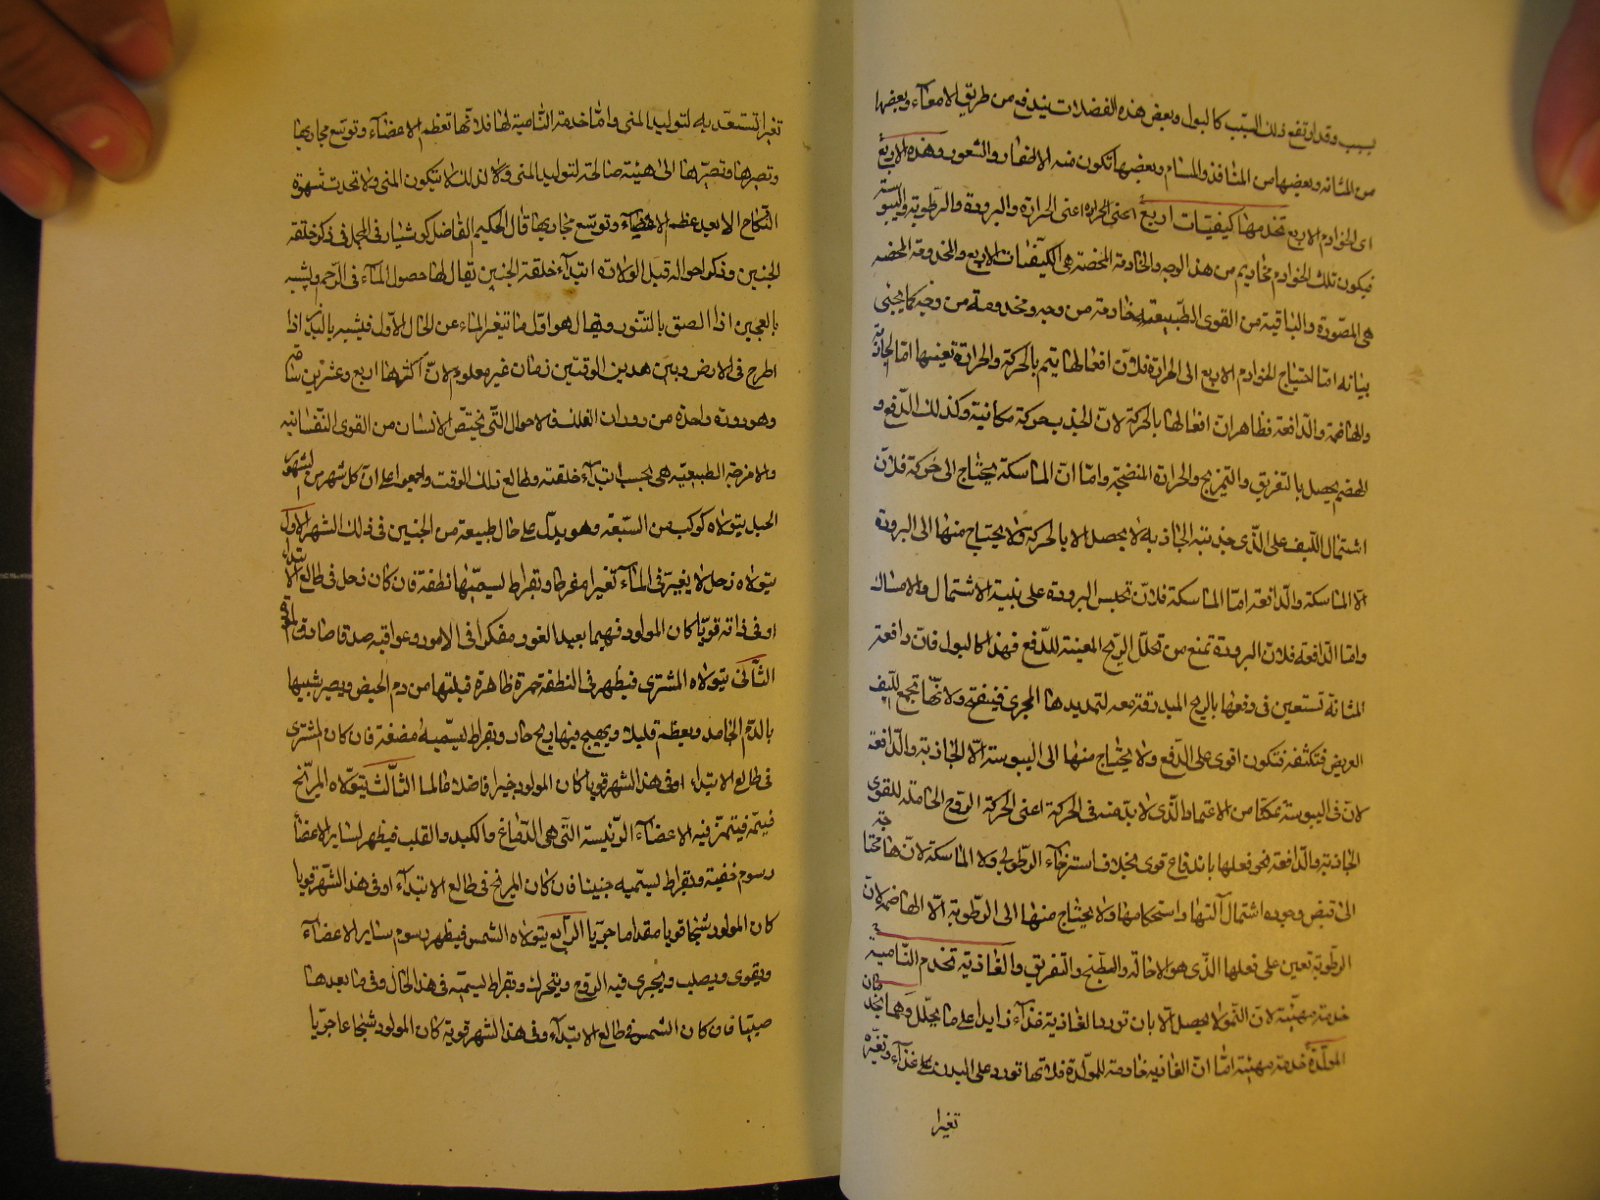 بسبب وقد ارتفع ذلك السبب كالبول وبعض هذه الفضلات يندفع من طريق الامعاء وبعضها
من المثانة وبعضها من المنافذ والمسام وبعضها تكون منه الاظفار والشعور وهذه الاربع
اى الخوادم الاربع تخدمها كيفيات اربع اعنى الحرارة والبرودة والرطوبة واليبوسة
فيكون تلك الخوادم مخاديم من هذا الوجه والخادمة المحضة هى الكيفيات الاربع والمخدومة المحضه
هى المصورة والباقية من القوى الطبيعيه خادمة من وجه ومخدومة من وجه كما يجئ
بيانه اما احتياج الخوادم الاربع الى الحرارة فلان افعالها يتم بالحركة والحرارة تعينها اما الجاذبة
والهاضمة والدافعة فظاهر ان افعالها بالحركة لان الجذب حركة مكانية وكذلك الدفع و
الهضم يحصل بالتفريق والتمزيج والحرارة المنضجة واما ان الماسكة يحتاج الى حركة فلان
اشتمال الليف على الذى جذبته الجاذبة لا يحصل الا بالحركة ولا يحتاج منها الى البرودة
الا الماسكة والدافعة اما الماسكة فلان تحبس البرودة على هيئة الاشتمال والامساك
واما الدافعة فلان البرودة تمنع من تحلل الريح المعينة للدفع فهذا كالبول فان دافعة
المثانة تستعين فى دفعها بالريح المبدرقة معه لتمديدها المجرى فينفتح ولانها تجمع الليف
العريض فتكثفه فتكون اقوى على الدفع ولا يحتاج منها الى اليبوسة الا الجاذبة والدافعة
لان فى اليبوسة تمكنا من الاعتماد الذى لا بد منه فى الحركة اعنى الحركة الروح الحاملة للقوى
الجاذبة والدافعة نحو فعلها باندفاع قوى بخلاف استرخاء الرطوبى ولا الماسكة لانها محتاجة
الى قبض وجوده اشتمال آلتها واستحكامها ولا يحتاج منها الى الرطوبة الا الهاضمة لان
الرطوبة تعين على فعلها الذى هو الاحالة والطبخ والتفريق والغاذية تخدم النامية
خدمة مهيئة لان النمو لا يحصل الا بان تورد الغاذية غذاء زايدا على ما يتحلل وهما يخدمان
المولدة خدمة مهيئة اما ان الغاذية خادمة للمولدة فلانها تورد على البدن غذاء وتغيره
تغيرا
تغيرا تستعد به لتوليد المنى واما خدمة النامية لها فلانها تعظم الاعضاء وتوسع مجاريها
وتصيرها الى هيئة صالحة لتوليد المنى ولذلك لا يتكون المنى ولا تحدث شهوة
النكاح الا بعد عظم الاعضاء وتوسع مجاريها قال الحكيم الفاضل كوشيار فى المجمل فى ذكر خلقة
الجنين وذكر احواله قبل الولادة ابتداء خلقة الجنين يقال لها حصول الماء فى الرحم ويشبه
بالعجين اذا الصق بالتنور ويقال هو اول ما تغير الماء عن الحال الاول فيشبه باللبن اذا
اطرح فى الارض وبين هذين الوقتين زمان غير معلوم لان اكثرها اربع وعشرين ساعة
وهو دورة واحدة من دوران الفلك فالاحوال التى تختص الانسان من القوى النفسانيه
والامزجة الطبيعيه هى بحسب ابتداء خلقته وطالع ذلك الوقت واجمعوا على ان كل شهر من شهور
الحبل يتولاه كوكب من السبعة وهو يدل على حال طبيعة من الجنين فى ذلك الشهر الاول
يتولاه زحل لا يغير فى الماء تغيرا مفرطا وبقراط يسميها نطفة فان كان زحل فى طالع الابتداء
او فى ذاته قويا كان المولود فهيما بعيد الغور مفكرا فى الامور وعواقبه صدقا صادق
الثانى يتولاه المشترى فيظهر فى النطفة حمرة ظاهرة قبلتها من دم الحيض ويصير شبيها
بالدم الجامد ويعظم قليلا ويهيج فيها ريح حار وبقراط يسميه مضغة فان كان المشترى
فى طالع الابتداء او فى هذا الشهر قويا كان المولود خيرا فاضلا عالما الثالث يتولاه المريخ
فيتميز فيه الاعضاء الرئيسة التى هى الدماغ والكبد والقلب فيظهر لساير الاعضا
رسوم خفية وبقراط يسميه جنينا فان كان المريخ فى طالع الابتداء او فى هذا الشهر قويا
كان المولود شجاعا قويا مقداما جريا الرابع يتولاه الشمس فيظهر رسوم ساير الاعضاء
ويقوى ويصلب ويجرى فيه الروح ويتحرك وبقراط يسميه فى هذا الحال وفى ما بعدها
صبيا فان كان الشمس فى طالع الابتداء وفى هذا الشهر قوية كان المولود شجاعا جريا